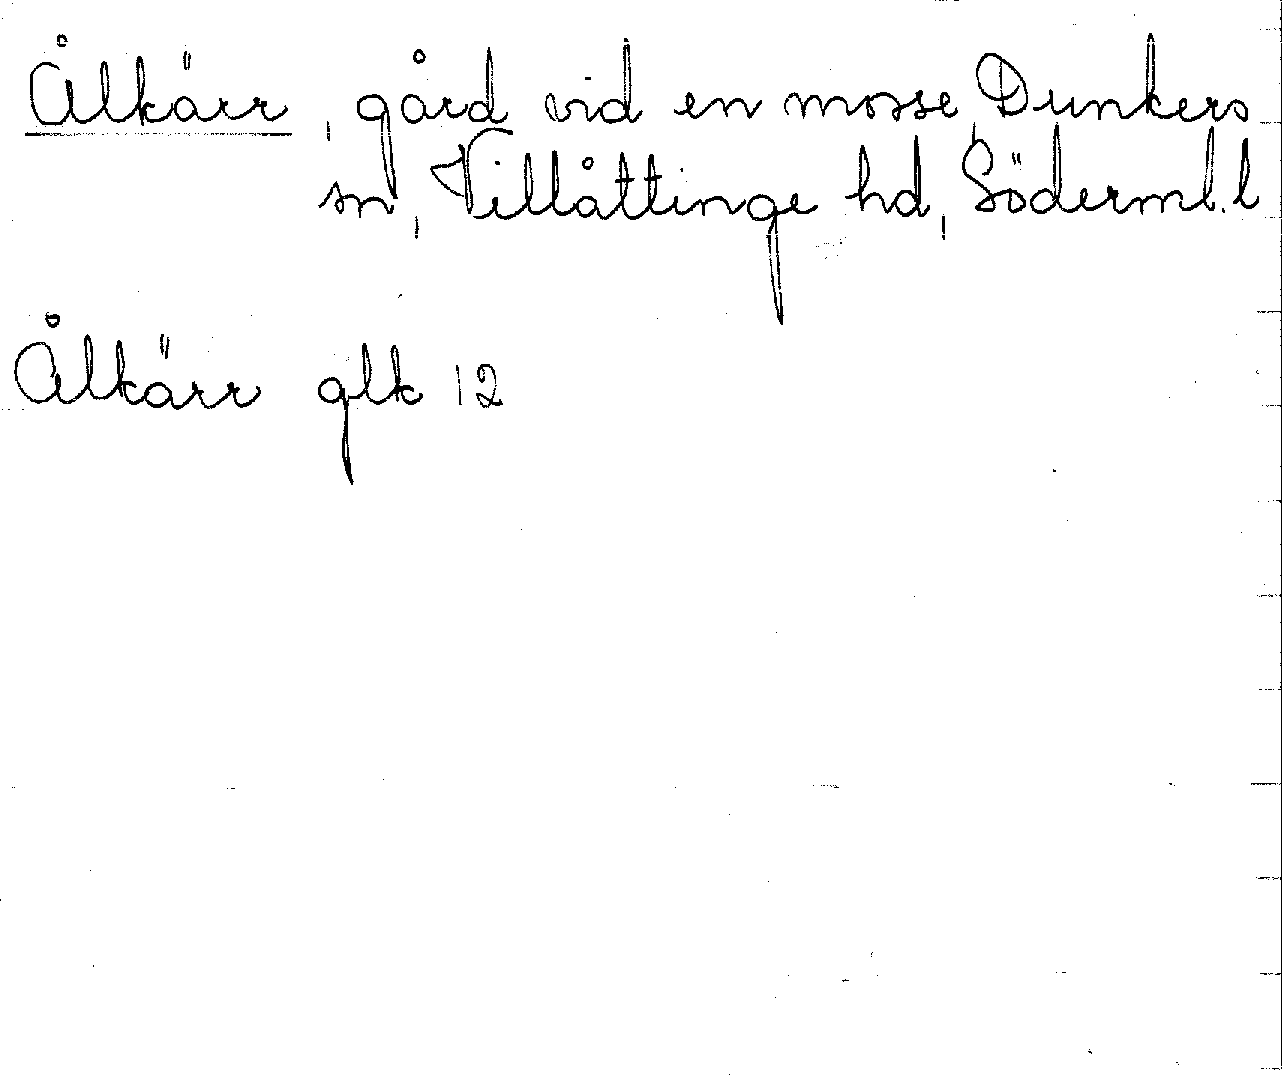 Ålkärr, gård vid en mosse, Dunkers
sn, Villåttinge hd, Söderml. l
Ålkärr glk 12